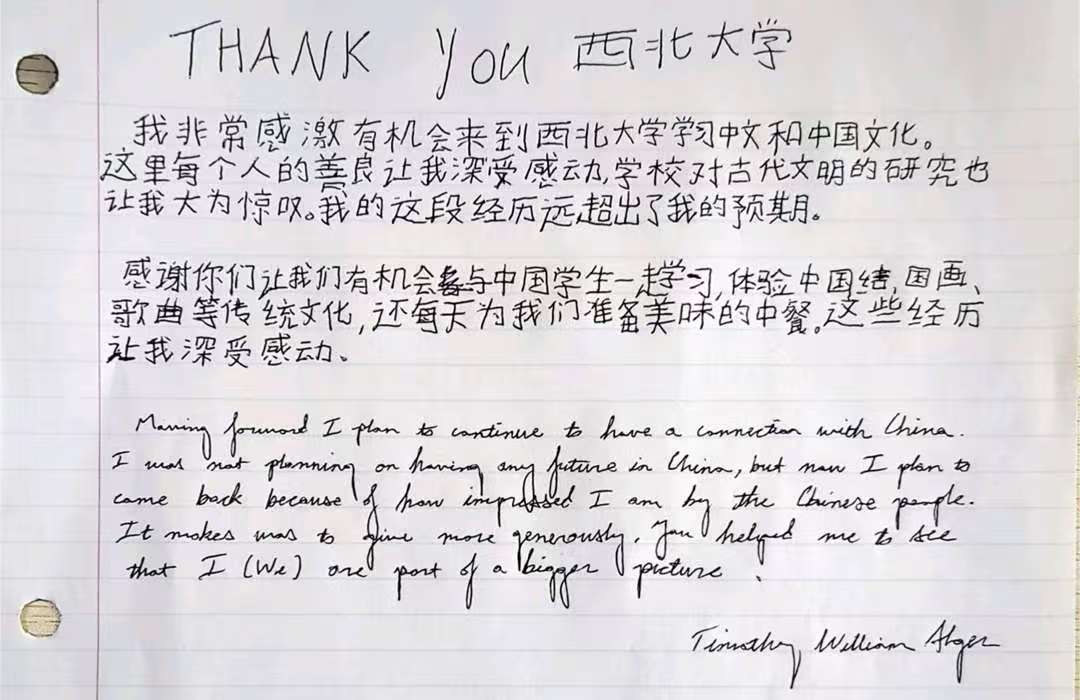 THANK YOU 西北大学
我非常感激有机会来到西北大学学习中文和中国文化。
这里每个人的善良让我深受感动,学校对古代文明的研究也
让我大为惊叹。我的这段经历远超出了我的预期。
感谢你们让我们有机会参与中国学生一起学习,体验中国结,国画、
歌曲等传统文化,还每天为我们准备美味的中餐。这些经历
让我深受感动、
Moving forward I plan to continue to have a connection with China.
I was not planning on having any future in China, but now I plan to
come back because of how impressed I am by the Chinese people.
It makes was to give more generously. You helped me to see
that I (We) are part of a bigger picture.
Timothy William Alger